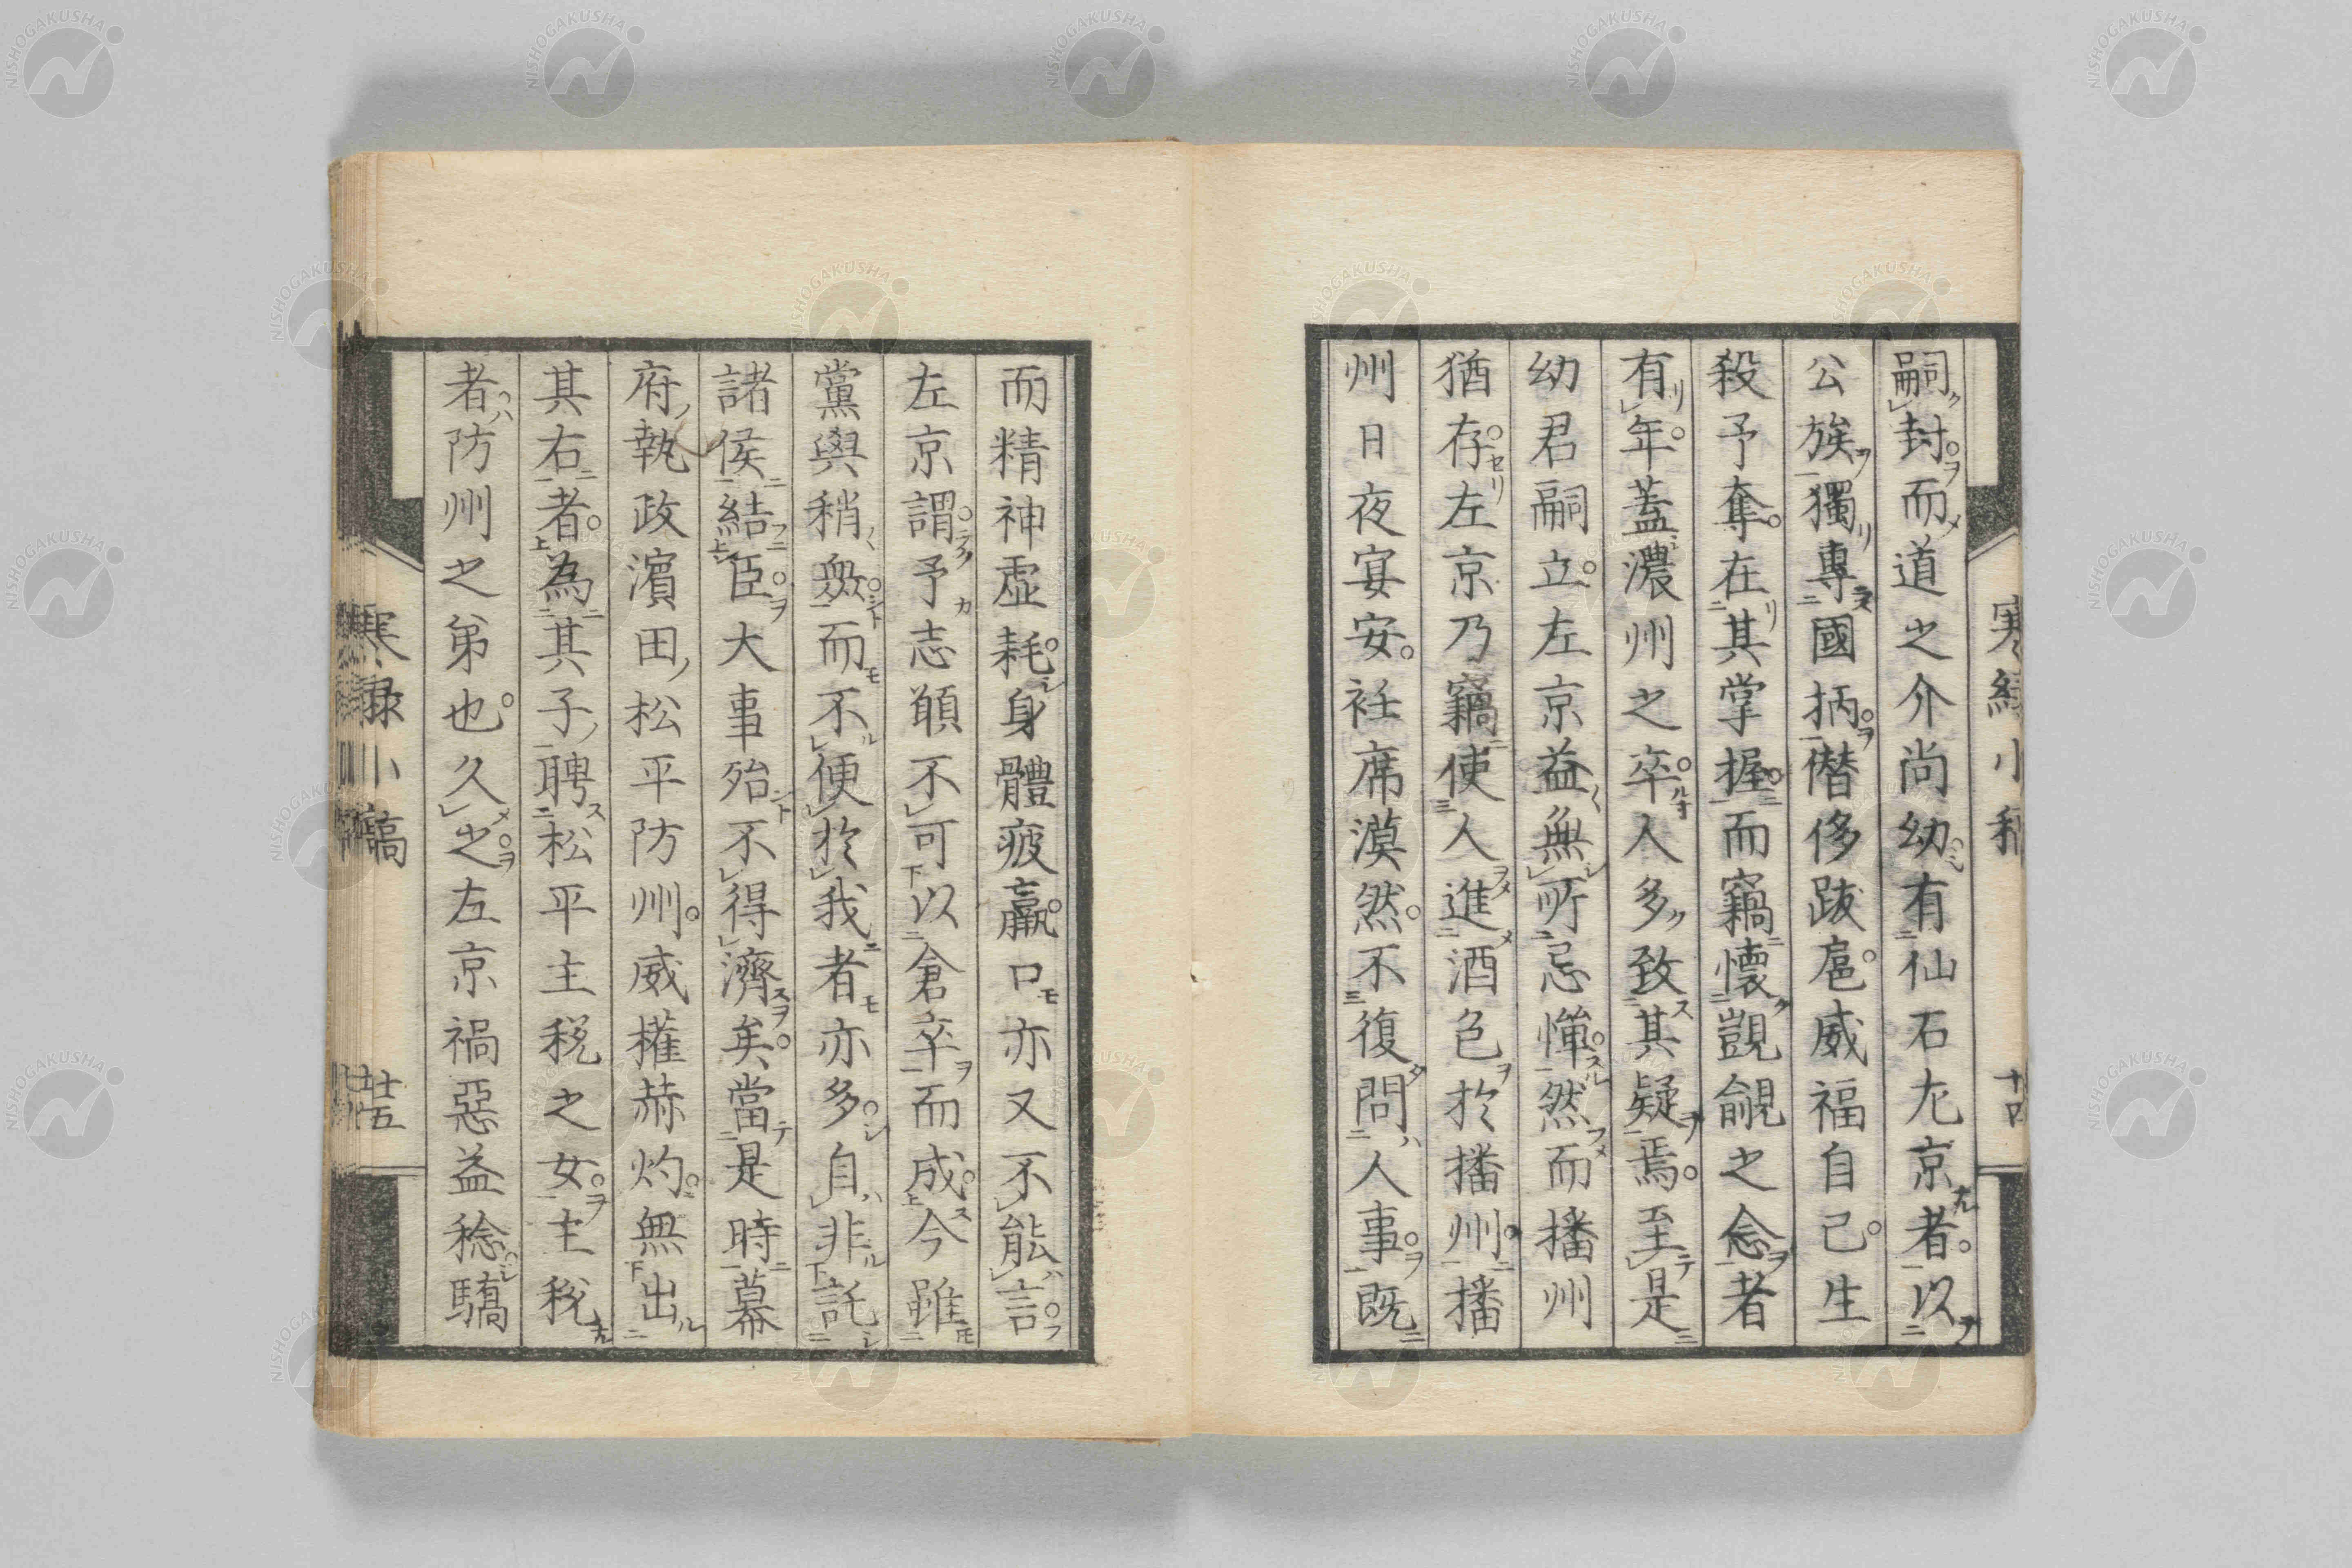 嗣封而道之介尚幼有仙石左京者以
公族獨專國柄僭侈跋扈威福自己生
殺予奪在其掌握而竊懷覬覦之念者
有年蓋濃州之卒人多致其疑焉至是
幼君嗣立左京益無所忌憚然而播州
猶存左京乃竊使人進酒色於播州播
州日夜宴安衽席漠然不復問人事既
而精神虛耗身體疲羸口亦又不能言
左京謂予志願不可以倉卒而成今雖
黨與稍衆而不便於我者亦多自非託
諸侯結臣大事殆不得濟矣當是時幕
府執政濱田松平防州威權赫灼無出
其右者為其子聘松平主稅之女主稅
者防州之弟也久之左京禍惡益稔驕
寒綠小稿
十四
十五
NISHOGAKUSHA